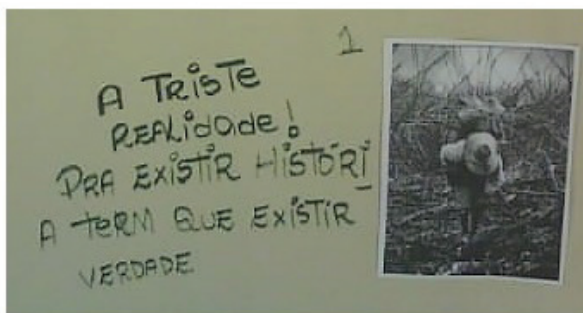 1
A TRiSTE
REALidade!
PRA EXiSTiR HiSTÓRi
A TERM QUE EXiSTiR
VERDADE